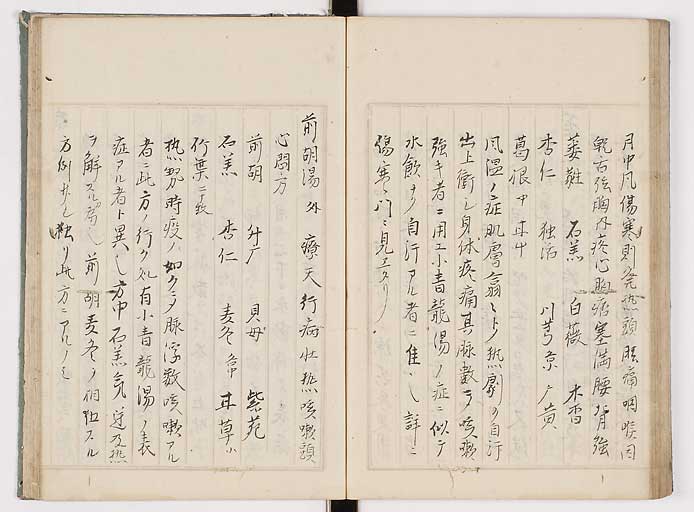 月中風傷寒則発熱頭眩痛咽喉因
乾舌強胸内疼心胸痞塞満腰背強
萎蕤 石羔 白薇 木香
杏仁 独活 川芎 京广黄
葛根 中 甘中
風温ノ症肌膚翕〻トノ熱劇ク自汗
出上衝シ身体疼痛其脉數ニノ咳嗽
強キ者ニ用ユ小青龍湯ノ症ニ似テ
水飲ナク自汗アル者ニ佳シ詳ニ
傷寒門ニ見エタリ
前胡湯 外 療天行病壮熱咳嗽頭
心悶方
前胡 升广 貝母 紫菀
石羔 杏仁 麦冬 甘草小
竹葉二十枚
熱勢時疫ノ如クニノ脉浮数咳嗽アル
者ニ此方ノ行ク処有小青龍湯ノ表
症アル者ト異シ方中石羔 及熱
ヲ解スル 前胡麦冬ノ伍スル
方例 独リ此方ニアルノミ